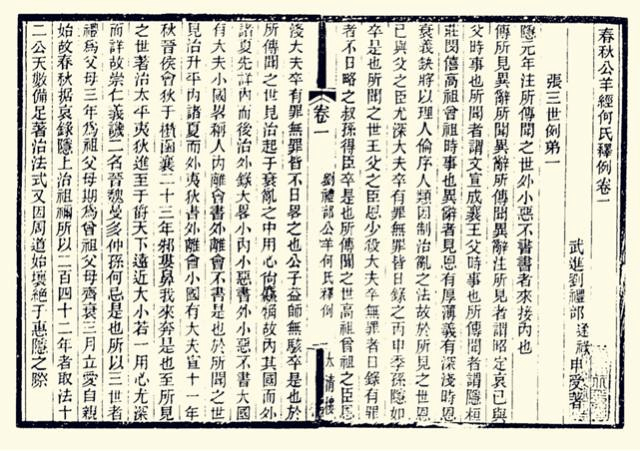 春秋公羊經何氏釋例卷一
武進劉禮部逢祿申受著
張三世例第一
隱元年注所傳聞之世外小惡不書書者來接內也
傳所見異辭所聞異辭所傳聞異辭注所見者謂昭定哀己與
父時事也所聞者謂文宣成襄王父時事也所傳聞者謂隱桓
莊閔僖高祖曾祖時事也異辭者見恩有厚薄義有深淺時恩
衰義缺將以理人倫序人類因制治亂之法故於所見之世恩
己與父之臣尤深大夫卒有罪無罪皆日錄之丙申季孫隱如
卒是也所聞之世王父之臣恩少殺大夫卒無罪者日錄有罪
者不日略之叔孫得臣卒是也所傳聞之世高祖曾祖之臣恩
卷一
劉禮部公羊何氏釋例
一
太清樓
淺大夫卒有罪無罪皆不日畧之也公子益師無駭卒是也於
所傳聞之世見治起于衰亂之中用心尙麤觕故內其國而外
諸夏先詳內而後治外錄大畧小內小惡書外小惡不書大國
有大夫小國畧稱人內離會書外離會不書是也於所聞之世
見治升平內諸夏而外夷狄書外離會小國有大夫宣十一年
秋晉侯會狄于攢函襄二十三年邾婁鼻我來奔是也至所見
之世著治太平夷狄進至于爵天下遠近大小若一用心尤深
而詳故崇仁義譏二名晉魏曼多仲孫何忌是也所以三世者
禮爲父母三年爲祖父母期爲曾祖父母齊衰三月立愛自親
始故春秋據哀錄隱上治祖禰所以二百四十二年者取法十
二公天數備足著治法式又因周道始壞絕于惠隱之際